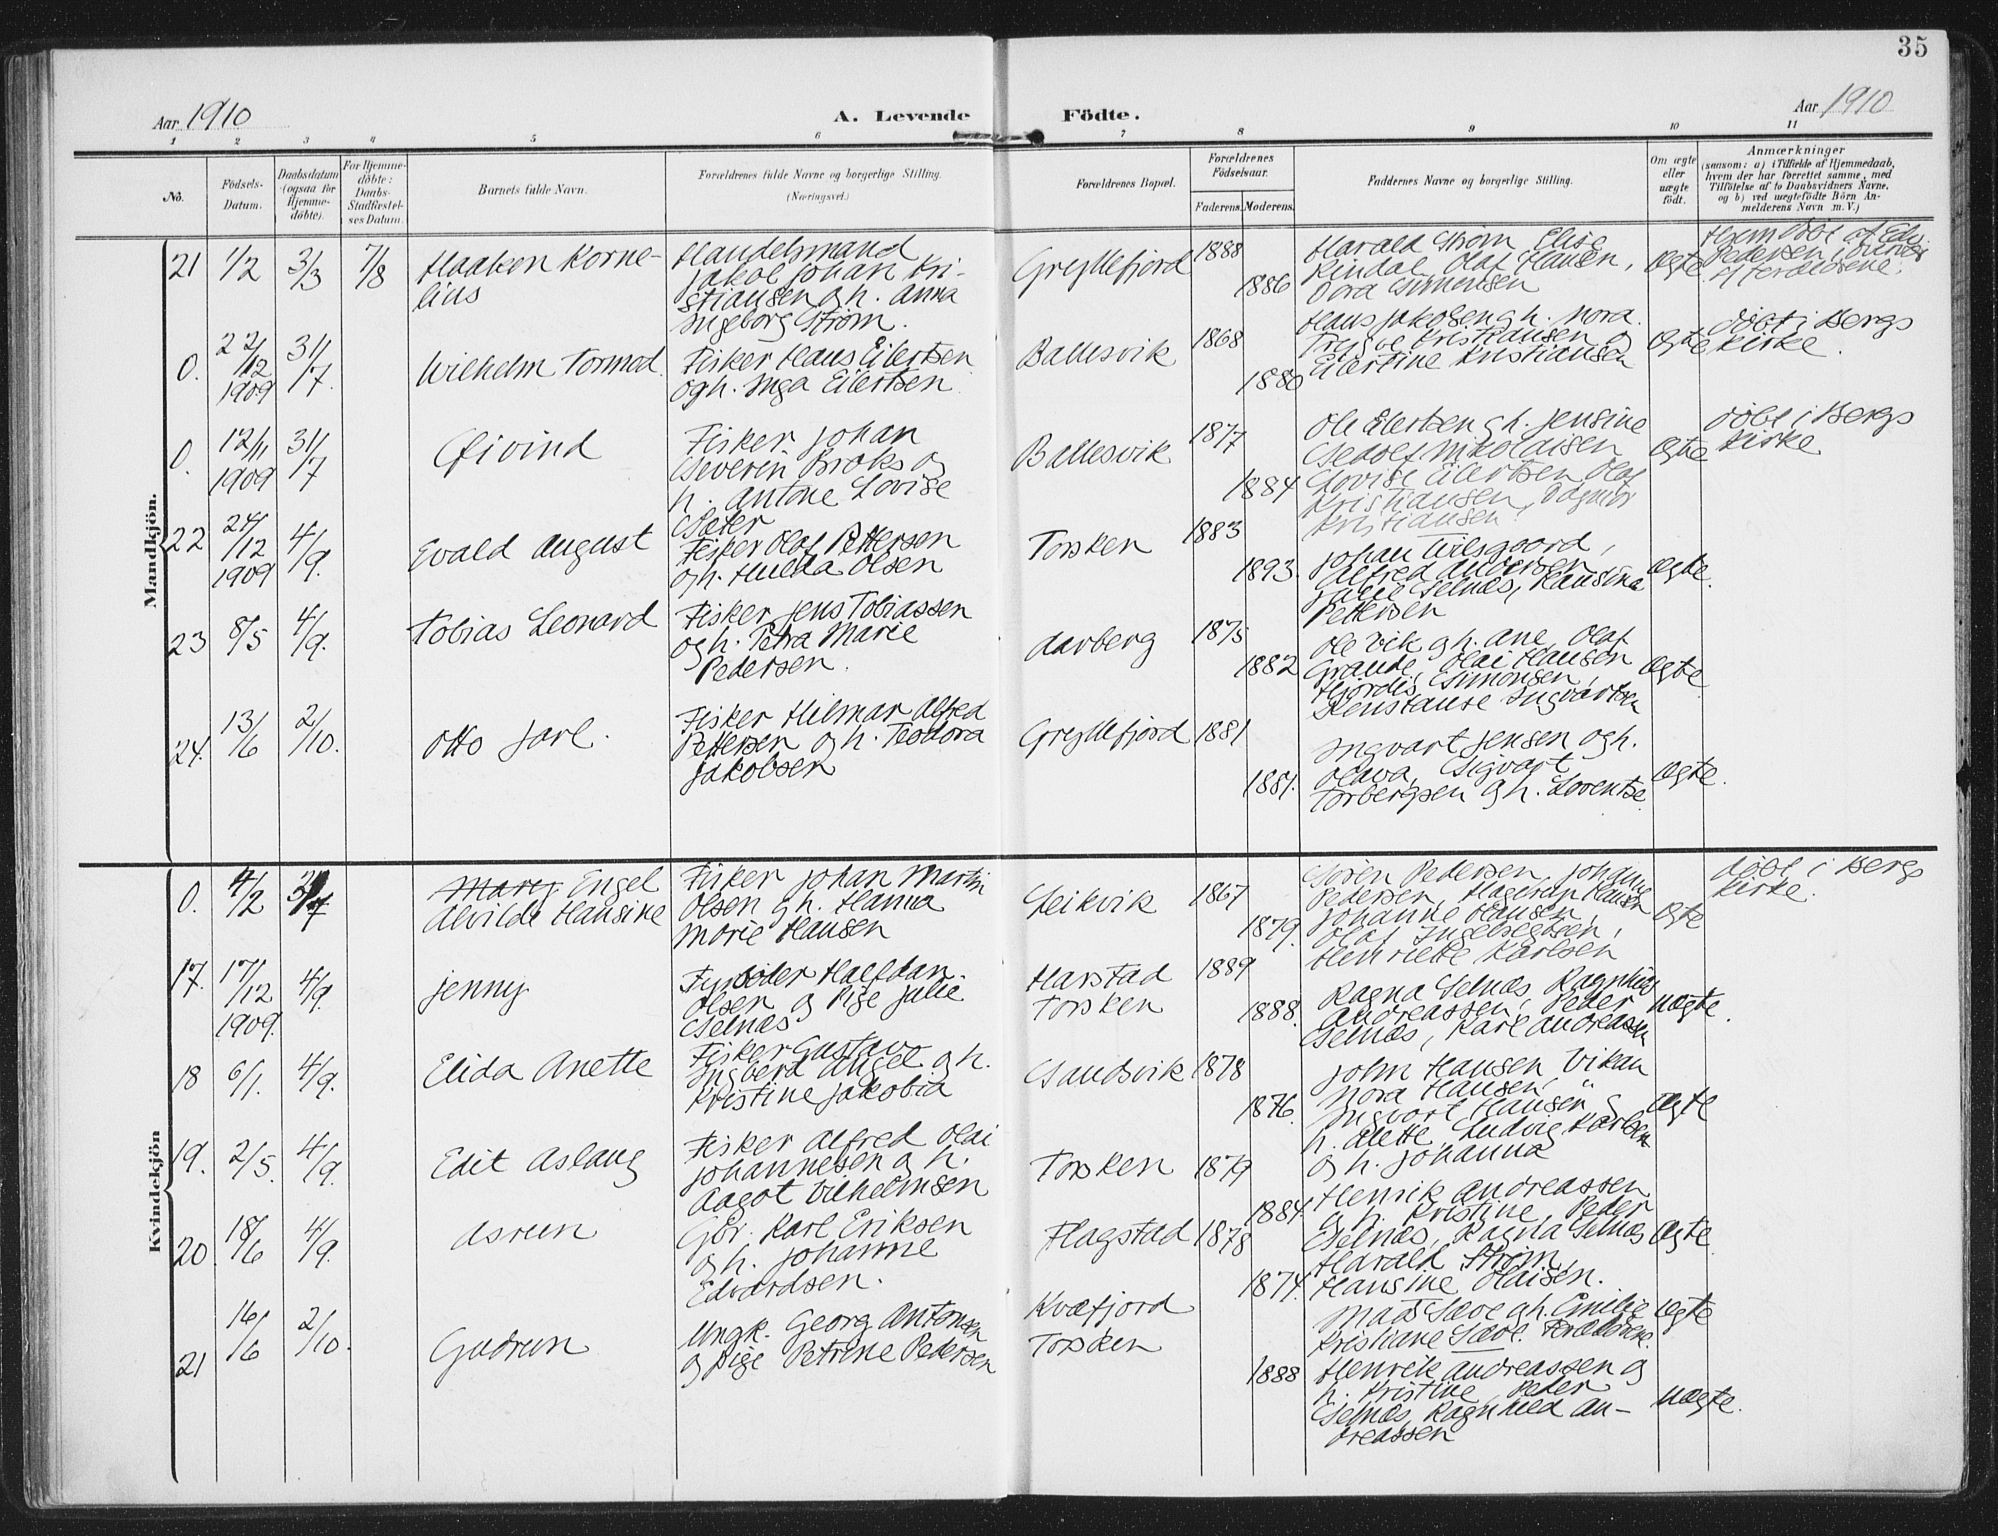 35
Aar 1910
A. Levende
Födte.
Aar 1910
1 2 3 4 5 6 7 8 9 10 11
No.
Födsels-
Datum.
Daabsdatum
(ogsaa for
Hjemme-
döbte).
For Hjemme-
döbte:
Daabs-
Stadfæstel-
ses Datum.
Barnets fulde Navn.
Forældrenes fulde Navne og borgerlige Stilling.
(Næringsvei.)
Forældrenes Bopæl.
Forældrenes
Födselsaar.
Faderens. Moderens.
Faddernes Navne og borgerlige Stilling.
Om ægte
eller
uægte
födt.
Anmærkninger
(saasom: a) i Tilfælde af Hjemmedaab,
hvem der har forrettet samme, med
Tilföielse af to Daabsvidners Navne,
og b) ved uægtefödte Börn An-
melderens Navn m.V.)
Mandkjön.
21 1/2 3/3 7/8
Haaken Korne-
lius
Handelsmand
Jakob Johan Kri-
stiansen og h. Anna
Ingeborg Strøm.
Gryllefjord 1888
1886
Harald Strøm, Elise
Rindal, Olaf Hansen,
Dora Simonsen
Ægte
Hjem døbt af Edv.
Pedersen i
forældrene.
0. 22/12 1909 31/7
Wilhelm Tormod.
Fisker Hans Eilertsen
og h. Inga Eilertsen
Ballesvik 1868
1880
Hans Jakobsen og h. Nora.
Trygve Kristiansen og
Eilertine Kristiansen
Ægte
Døbt i Bergs
kirke.
0. 12/11 1909 31/7
Øivind
Fisker Johan
Severin Broks og
h. Antone Lovise
Sæter
Ballesvik 1877
1884
Ole Eilertsen og h. Jensine
Sedolf Nikolaisen
Lovise Eilertsen Olaf
Kristiansen, Dagmar
Kristiansen
Ægte
Døbt i Bergs
kirke
22 24/12 1909 4/9.
Evald August
Fisker Olaf Pettersen
og h. Hulda Olsen
Torsken 1883
1893.
Johan
Alfred
Julie Selnæs, Hansina
Pettersen
Ægte.
23 8/5 4/9.
Tobias Leonard
Fisker Jens Tobiassen
og h. Petra Marie
Pedersen.
Aarberg 1875
1882
Ole Vik og h. Ane, Olaf
Grande, Olai Hansen
Hjørdis Simonsen,
Konstanse Ingvartsen
Ægte
24. 13/6 2/10.
Otto Jarl.
Fisker Hilmar Alfred
Pettersen og h. Teodora
Jakobsen
Gryllefjord 1881
1881.
Ingvart Jensen og h.
Olava, Sigvart
Torbergsen og h. Lorentse.
Ægte.
Kvindekjön
0. 4/2 31/7
Mary Engel
Alvilde Hansine
Fisker Johan Martin
Olsen og h. Hanna
Marie Hansen
Leikvik 1867
1879.
Søren Pedersen, Johanne
Pedersen, Hagerup Hansen
Johanne Hansen,
Olaf Ingebrigtsen,
Henriette Karlsen
Ægte
Døbt i Bergs
kirke.
17. 17/12 1909. 4/9.
Jenny
Halfdan
Olsen og Pige Julie
Selnæs
Harstad 1889
Torsken 1888.
Ragna Selnæs, Ragnhild
Andreassen, Peder
Selnæs, Karl Andreassen
Uægte.
18 6/1. 4/9.
Elida Anette
Fisker Gustav
Ingberd Angel og h.
Kristine Jakobia
Sandsvik 1878
1876.
John Hansen Vikan
Nora Hansen,
Ingvart Hansen og
h. Alette, Ludvig Karlsen
og h. Johanna
Ægte
19. 2/5. 4/9.
Edit Aslaug
Fisker Alfred Olai
Johannesen og h.
Aagot Vilhelmsen
Torsken 1879
1884.
Henrik Andreassen
og h. Kristine, Peder
Selnæs, Ragna Selnæs
Ægte.
20. 18/6 4/9.
Asrun
Gbr. Karl Eriksen
og h. Johanne
Edvardsen.
Flagstad 1878
1874.
Harald Strøm,
Hansine Olaisen.
Mads Save og h. Emilie
Kristiane Save. Forældrene.
Ægte
21 16/6 2/10.
Gudrun
Ungk. Georg Antonsen
og Pige Petrine Pedersen
Kvæfjord
Torsken
1888
Henrik Andreassen og
h. Kristine, Peder
Selnæs, Ragnhild An-
dreassen
Uægte.